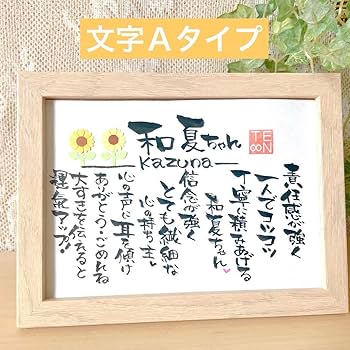 文字Aタイプ
和夏ちゃん
Kazuna
TE
∞N
責任感が強く
一人でコツコツ
丁寧に積みあげる
和夏ちゃん
信念が強く
とても繊細な
心の持ち主
心の声に耳を傾け
ありがとう・ごめんね
大すきを伝えると
運気アップ!!